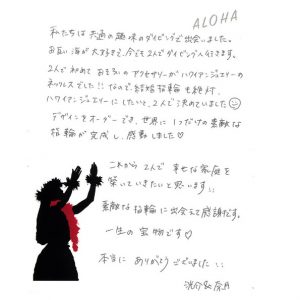 ALOHA
私たちは共通の趣味のダイビングで出会いました。
お互い海が大好きで、今でも2人でダイビングへ行きます。
2人で初めておそろいのアクセサリーがハワイアンジュエリーの
ネックレスでした!! なので、結婚指輪も絶対、
ハワイアンジュエリーにしたいと、2人で決めていました
デザインをオーダーでき、世界に1つだけの素敵な
指輪が完成し、感動しました♡
これから2人で幸せな家庭を
築いていきたいと思います!!
素敵な指輪に出会えて感謝です。
一生の宝物です♡
本当にありがとうございました!!